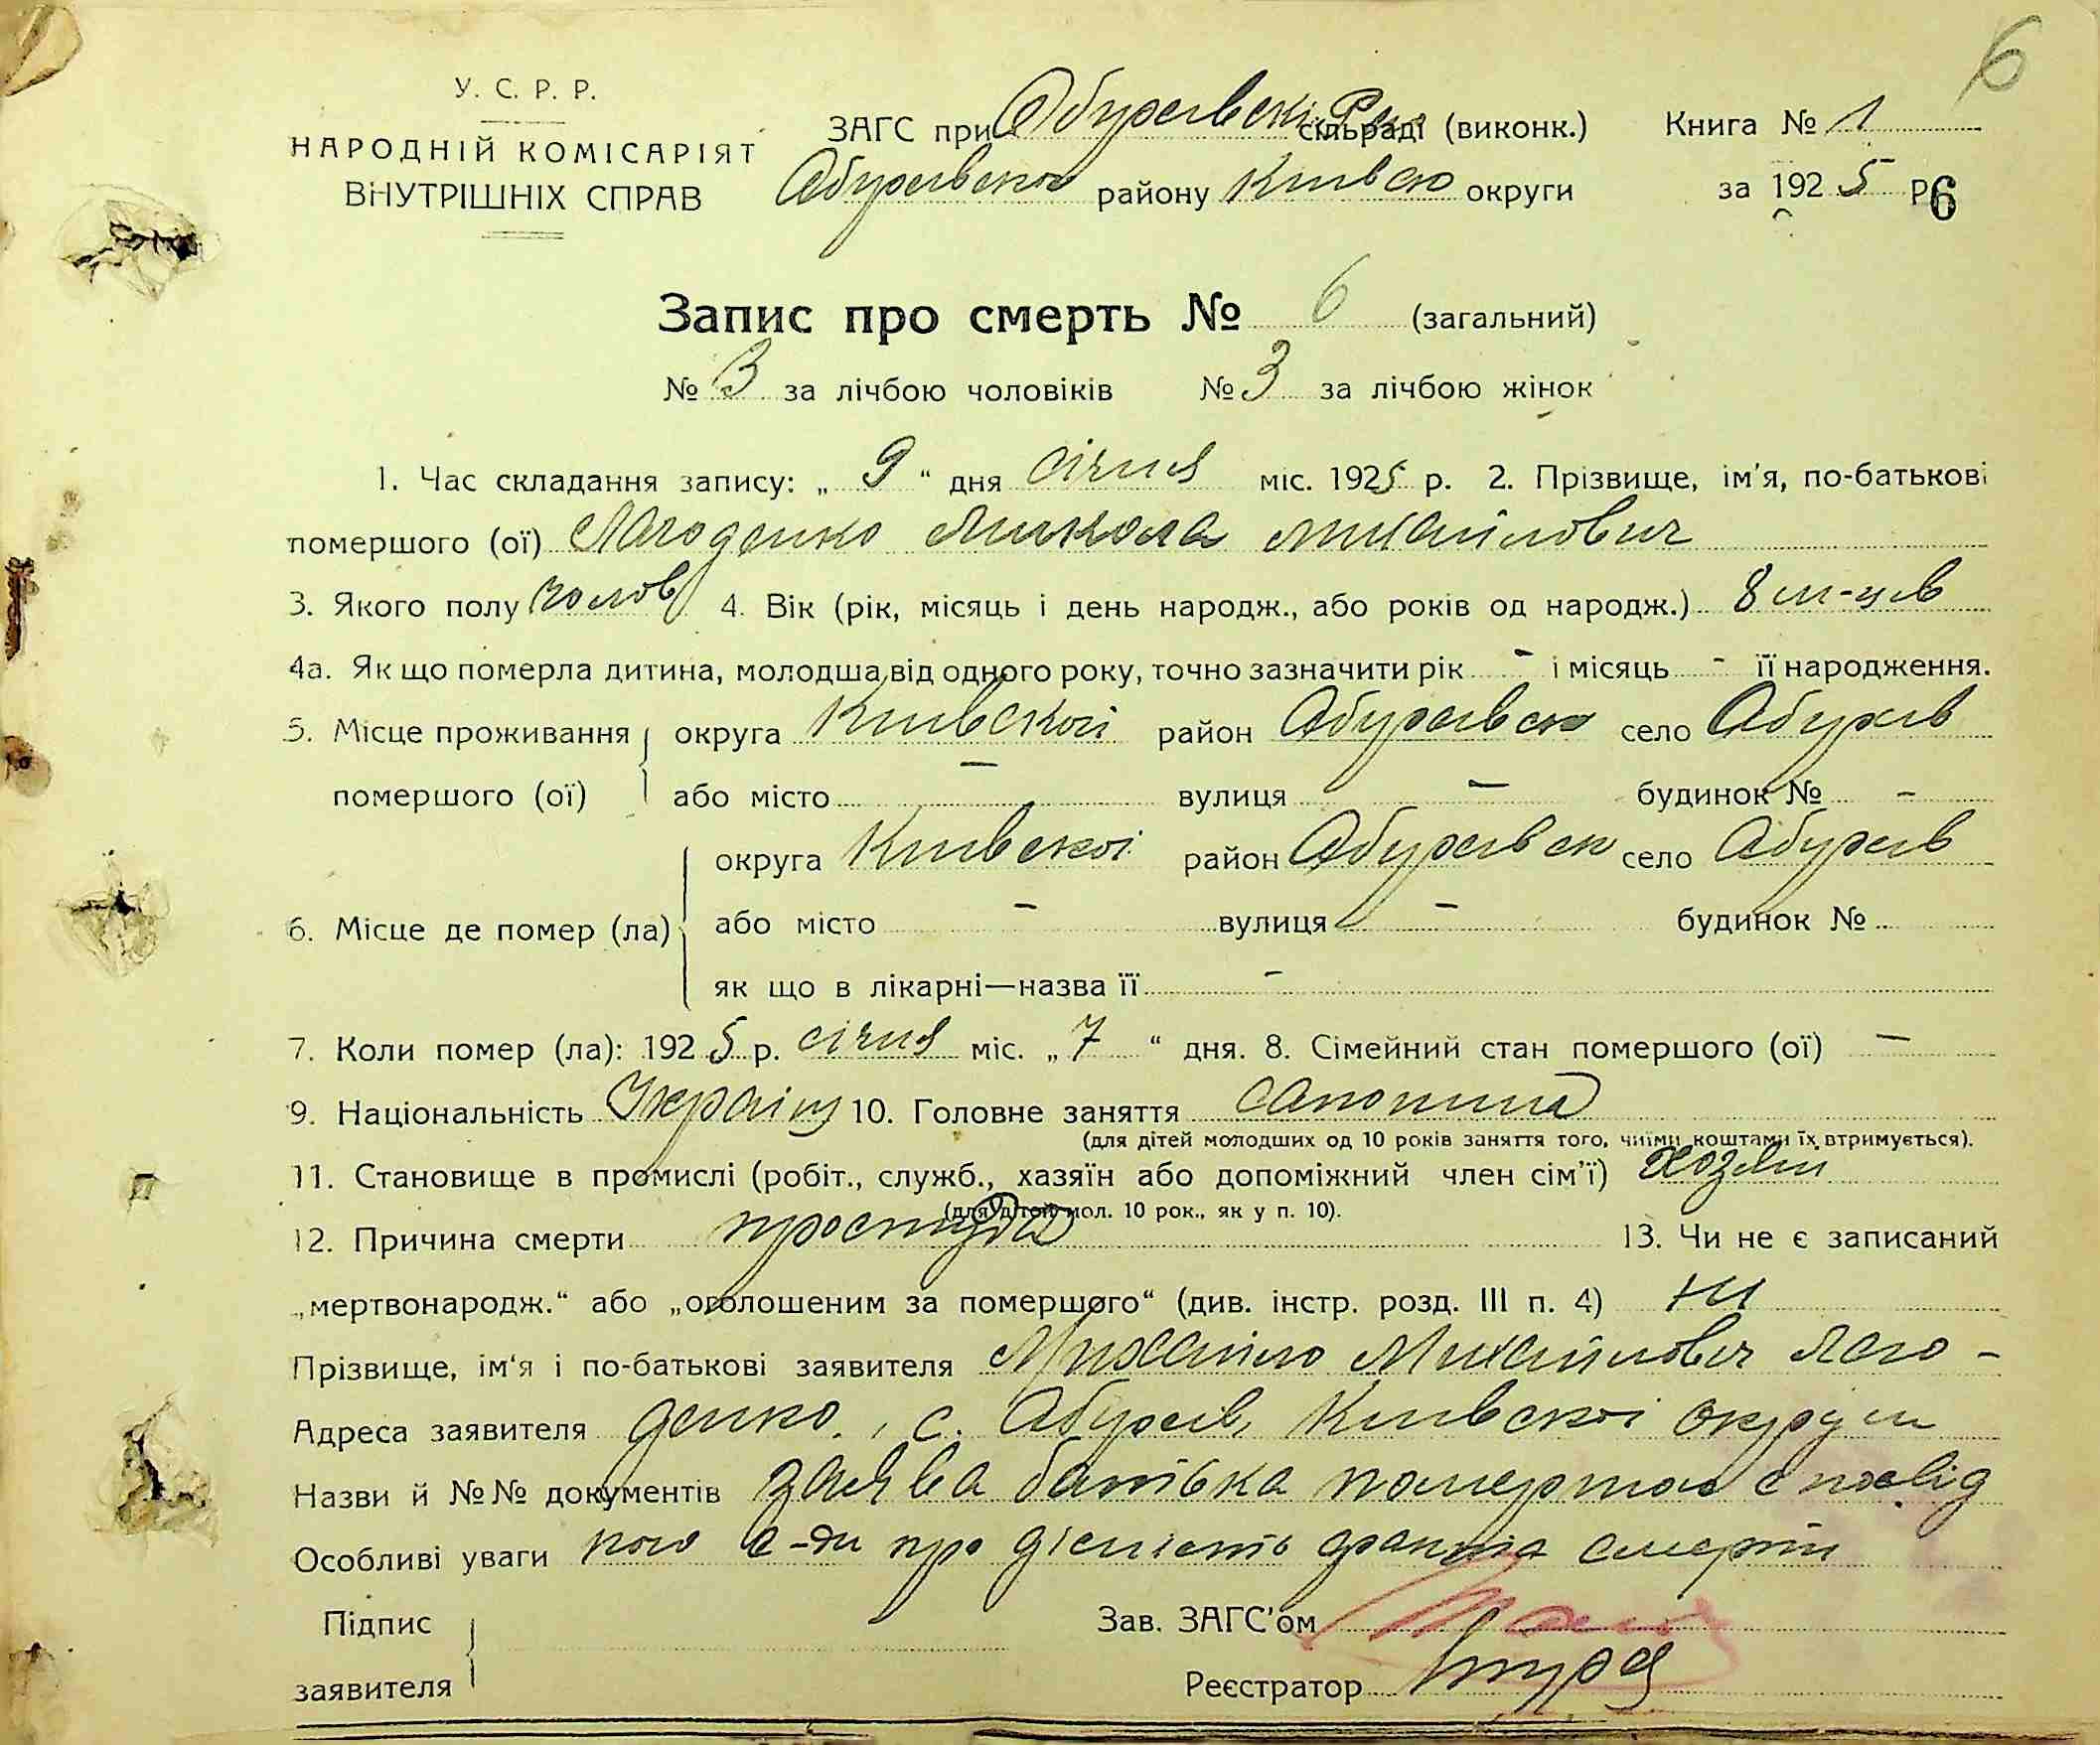 6
У. С. Р. Р.
НАРОДНІЙ КОМІСАРІЯТ
ВНУТРІШНІХ СПРАВ
ЗАГС при сільраді (виконк.)
району Київсю округи
Книга № 1
за 1925 р
6
Запис про смерть № 6 (загальний)
№ 3 за лічбою чоловіків № 3 за лічбою жінок
1. Час складання запису: „ 9 “ дня січня міс. 1925 р. 2. Прізвище, ім'я, по-батькові
помершого (ої) Лагоденко Микола Михайлович
3. Якого полу чолов 4. Вік (рік, місяць і день народж., або років од народж.) 8 м-ців
4а. Як що померла дитина, молодша від одного року, точно зазначити рік - і місяць - її народження.
5. Місце проживання округа Київської район Обухівсю село Обухів
помершого (ої) або місто — вулиця — будинок № -
6. Місце де помер (ла) округа Київської район Обухівськ село Обухів
або місто - вулиця - будинок №
як що в лікарні—назва її -
7. Коли помер (ла): 1925 р. січня міс. „ 7 “ дня. 8. Сімейний стан помершого (ої) —
9. Національність Україн 10. Головне заняття
(для дітей молодших од 10 років заняття того, чиїми коштами їх втримується).
11. Становище в промислі (робіт., служб., хазяїн або допоміжний член сім'ї) хозяїн
(для дітей мол. 10 рок., як у п. 10).
12. Причина смерти простуда 13. Чи не є записаний
„мертвонародж.“ або „оголошеним за помершого“ (див. інстр. розд. III п. 4) ні
Прізвище, ім'я і по-батькові заявителя Михайло Михайлович Лаго-
Адреса заявителя денко., с. Обухів, Київскої округи
Назви й №№ документів заява батівка помершого
Особливі уваги про дісність факта смерти
Підпис
заявителя
Зав. ЗАГС'ом
Реєстратор